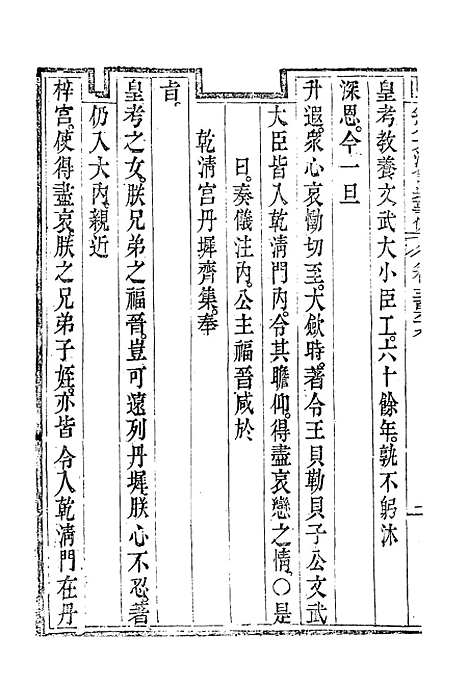 皇考教養文武大小臣工。六十餘年。孰不躬沐
深恩。今一旦
升遐。衆心哀慟切至。大歛時。著令王貝勒貝子公文武
大臣皆入乾清門內。令其瞻仰。得盡哀戀之情。○是
日。奏儀注內。公主福晉咸於
乾清宮丹墀齊集。奉
旨。
皇考之女。朕兄弟之福晉。豈可遠列丹墀。朕心不忍。著
仍入大內。親近
梓宮。使得盡哀。朕之兄弟子姪。亦皆令入乾清門在丹